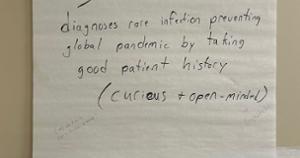 diagnoses rare infection preventing
global pandemic by taking
good patient history
(curious + open-minded)